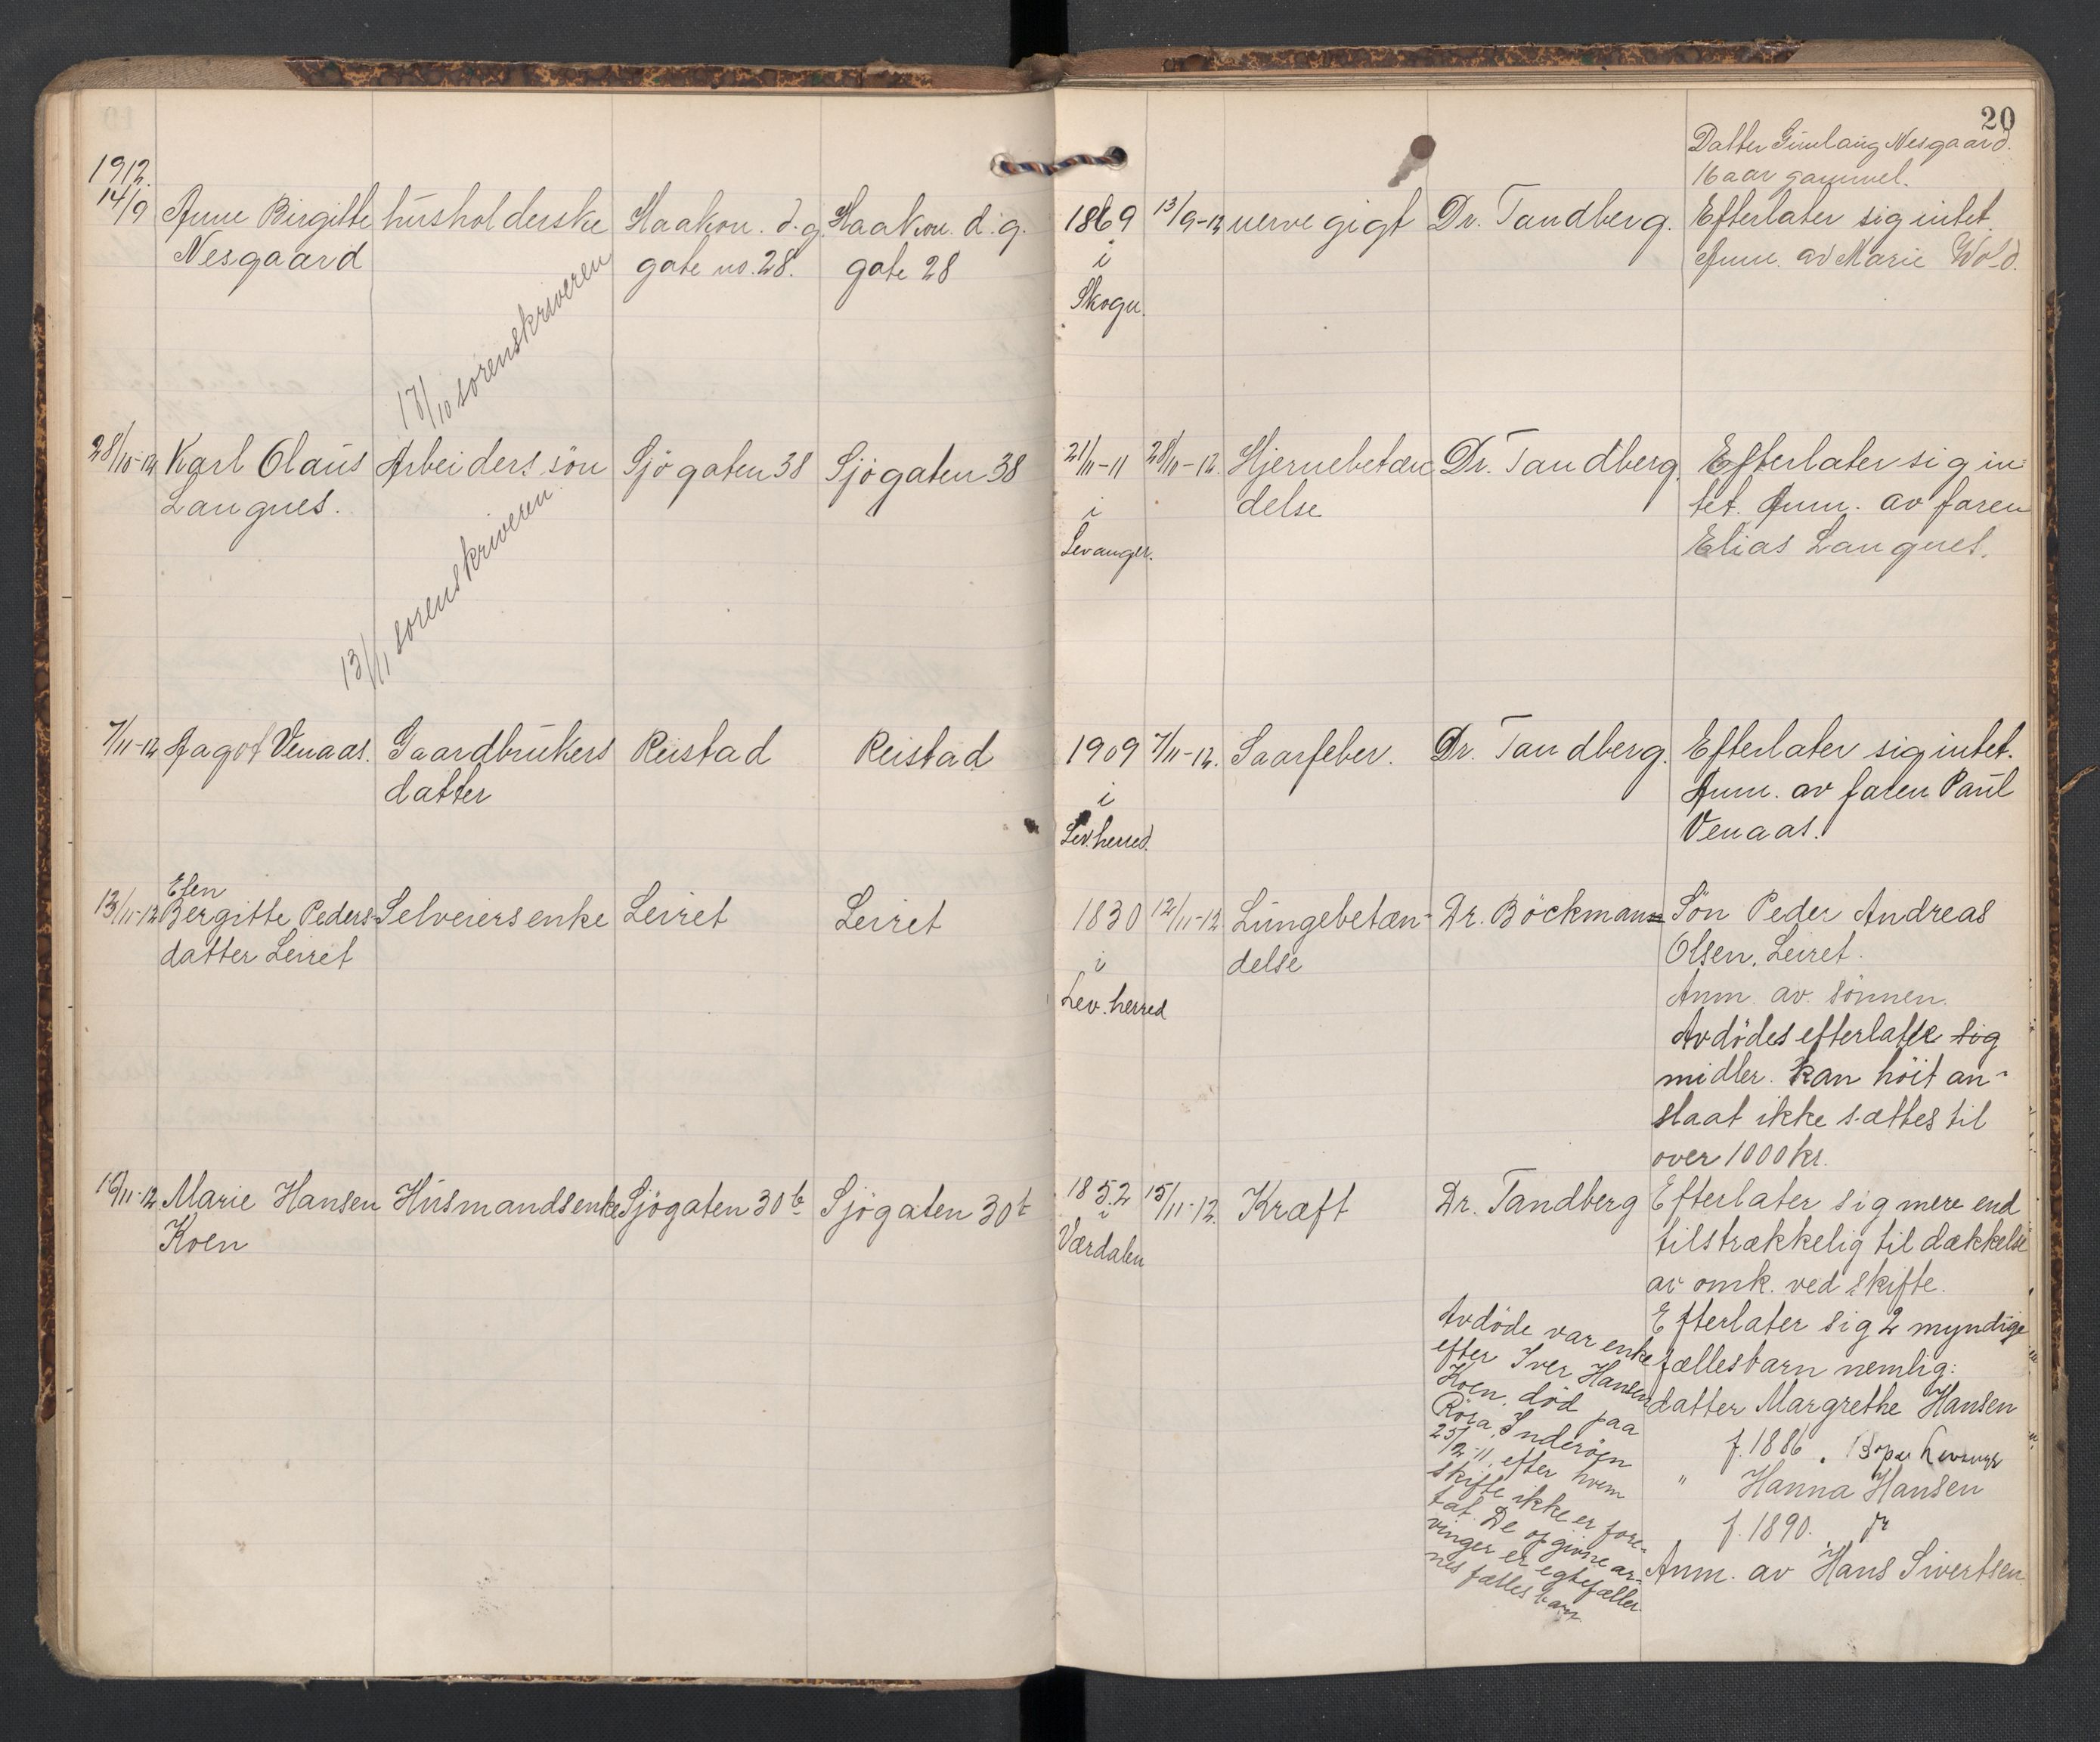 20
1912.
Datter Gunlaug Nesgaard.
16 aar gammel.
14/9 Anne Birgitte husholderske Haakon. d. g. Haakon d. g. 1869 13/9-12 nervegigt Dr. Tandberg. Efterlater sig intet.
Nesgaard gate no. 28. gate 28 i Anm. av Marie Wold.
Skogn.
17/10 sorenskriveren
28/10-12 Karl Olaus Arbeiders sön Sjögaten 38 Sjögaten 38 21/11-11 28/10-12. Hjernebetæn Dr. Tandberg. Efterlater sig in-
Langnes. i delse tet. Anm. av faren
Levanger. Elias Langnes.
13/11 sorenskriveren
7/11-12 Aagot Venaas. Gaardbrukers Reistad Reistad 1909 7/11-12. Saarfeber. Dr. Tandberg. Efterlater sig intet.
datter i Anm. av faren Paul
Lev. herred. Venaas.
Elen
13/11-12 Bergitte Peders- Selveiersenke Leiret Leiret 1830 12/11-12. Lungebetæn- Dr. Böckmann Sön Peder Andreas
datter Leiret i delse Olsen, Leiret.
Lev. herred Anm. av sönnen.
Avdödes efterlatte sig
midler. kan höit an-
slaat ikke sættes til
over 1000 kr.
16/11-12 Marie Hansen Husmandsenke Sjögaten 30 b Sjögaten 30 b 1852 15/11-12. Kræft Dr. Tandberg Efterlater sig mere end
Koen i tilstrækkelig til dækkelse
Værdalen av omk. ved skifte.
Efterlater sig 2 myndige
fællesbarn nemlig:
datter Margrethe Hansen
f. 1886. Levanger
" Hanna Hansen
f. 1890.
Anm. av Hans Sivertsen
Avdöde var enke
efter Iver Hansen
Koen, död paa
Röra, Inderöen
25/2-11, efter hvem
skifte ikke er fore-
tat. De opgivne ar-
vinger er egtefælle-
nes fælles barn